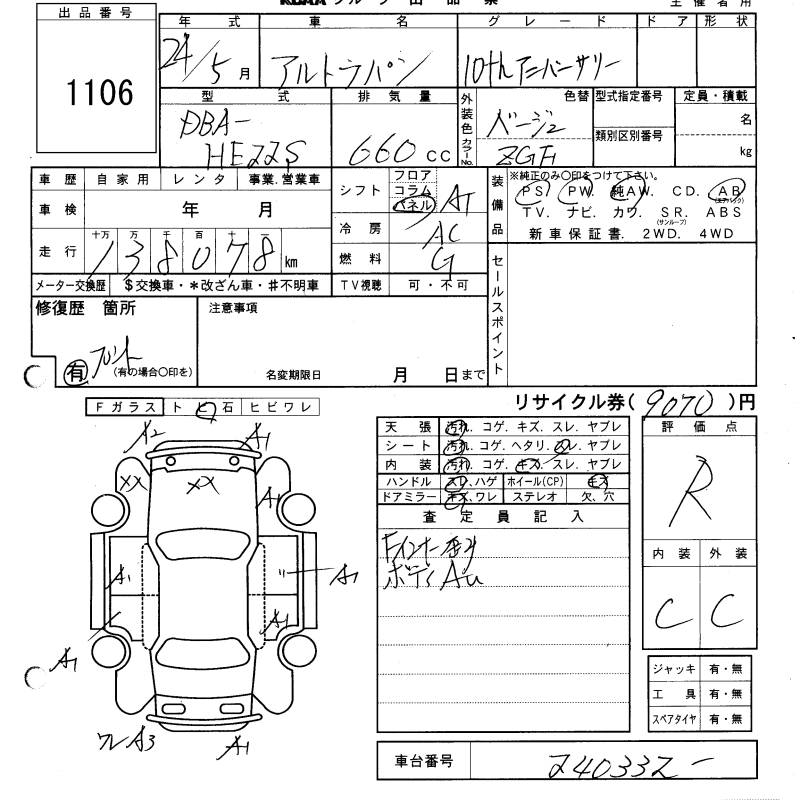 出品番号
1106
年式 車名 グレード ドア 形状
24/5月 アルトラパン 10thアニバーサリー
型式 排気量 外装色 カラーNo. 色替 型式指定番号 定員・積載
DBA-HE22S 660cc ベージュ ZGF 類別区別番号 名 kg
車歴 自家用 レンタ 事業.営業車
車検 年 月
走行 十万 万 千 百 十 一
138078 km
メーター交換歴 $交換車・*改ざん車・#不明車
シフト フロア コラム パネル AT
冷房 AC
燃料 G
TV視聴 可・不可
装備品 ※純正のみ○印をつけて下さい。
PS. PW. 純AW. CD. AB (エアバック)
TV. ナビ. カワ. SR. (サンルーフ) ABS
新車保証書. 2WD. 4WD
セールスポイント
修復歴 箇所
有 フロント
(有の場合○印を)
注意事項
名変期限日 月 日まで
リサイクル券( 9070 )円
Fガラス トビ石 ヒビワレ
天張 汚れ. コゲ. キズ. スレ. ヤブレ
シート 汚れ. コゲ. ヘタリ. スレ. ヤブレ
内装 汚れ. コゲ. キズ. スレ. ヤブレ
ハンドル スレ.ハゲ ホイール(CP) キズ
ドアミラー キズ.ワレ ステレオ 欠、穴
評価点
R
内装 外装
C C
査定員記入
Fインナー歪み
ボディAU
A2 A1
XX XX A1
A1 A1
A1
A1
ワレA3 A1
ジャッキ 有・無
工具 有・無
スペアタイヤ 有・無
車台番号 240332-